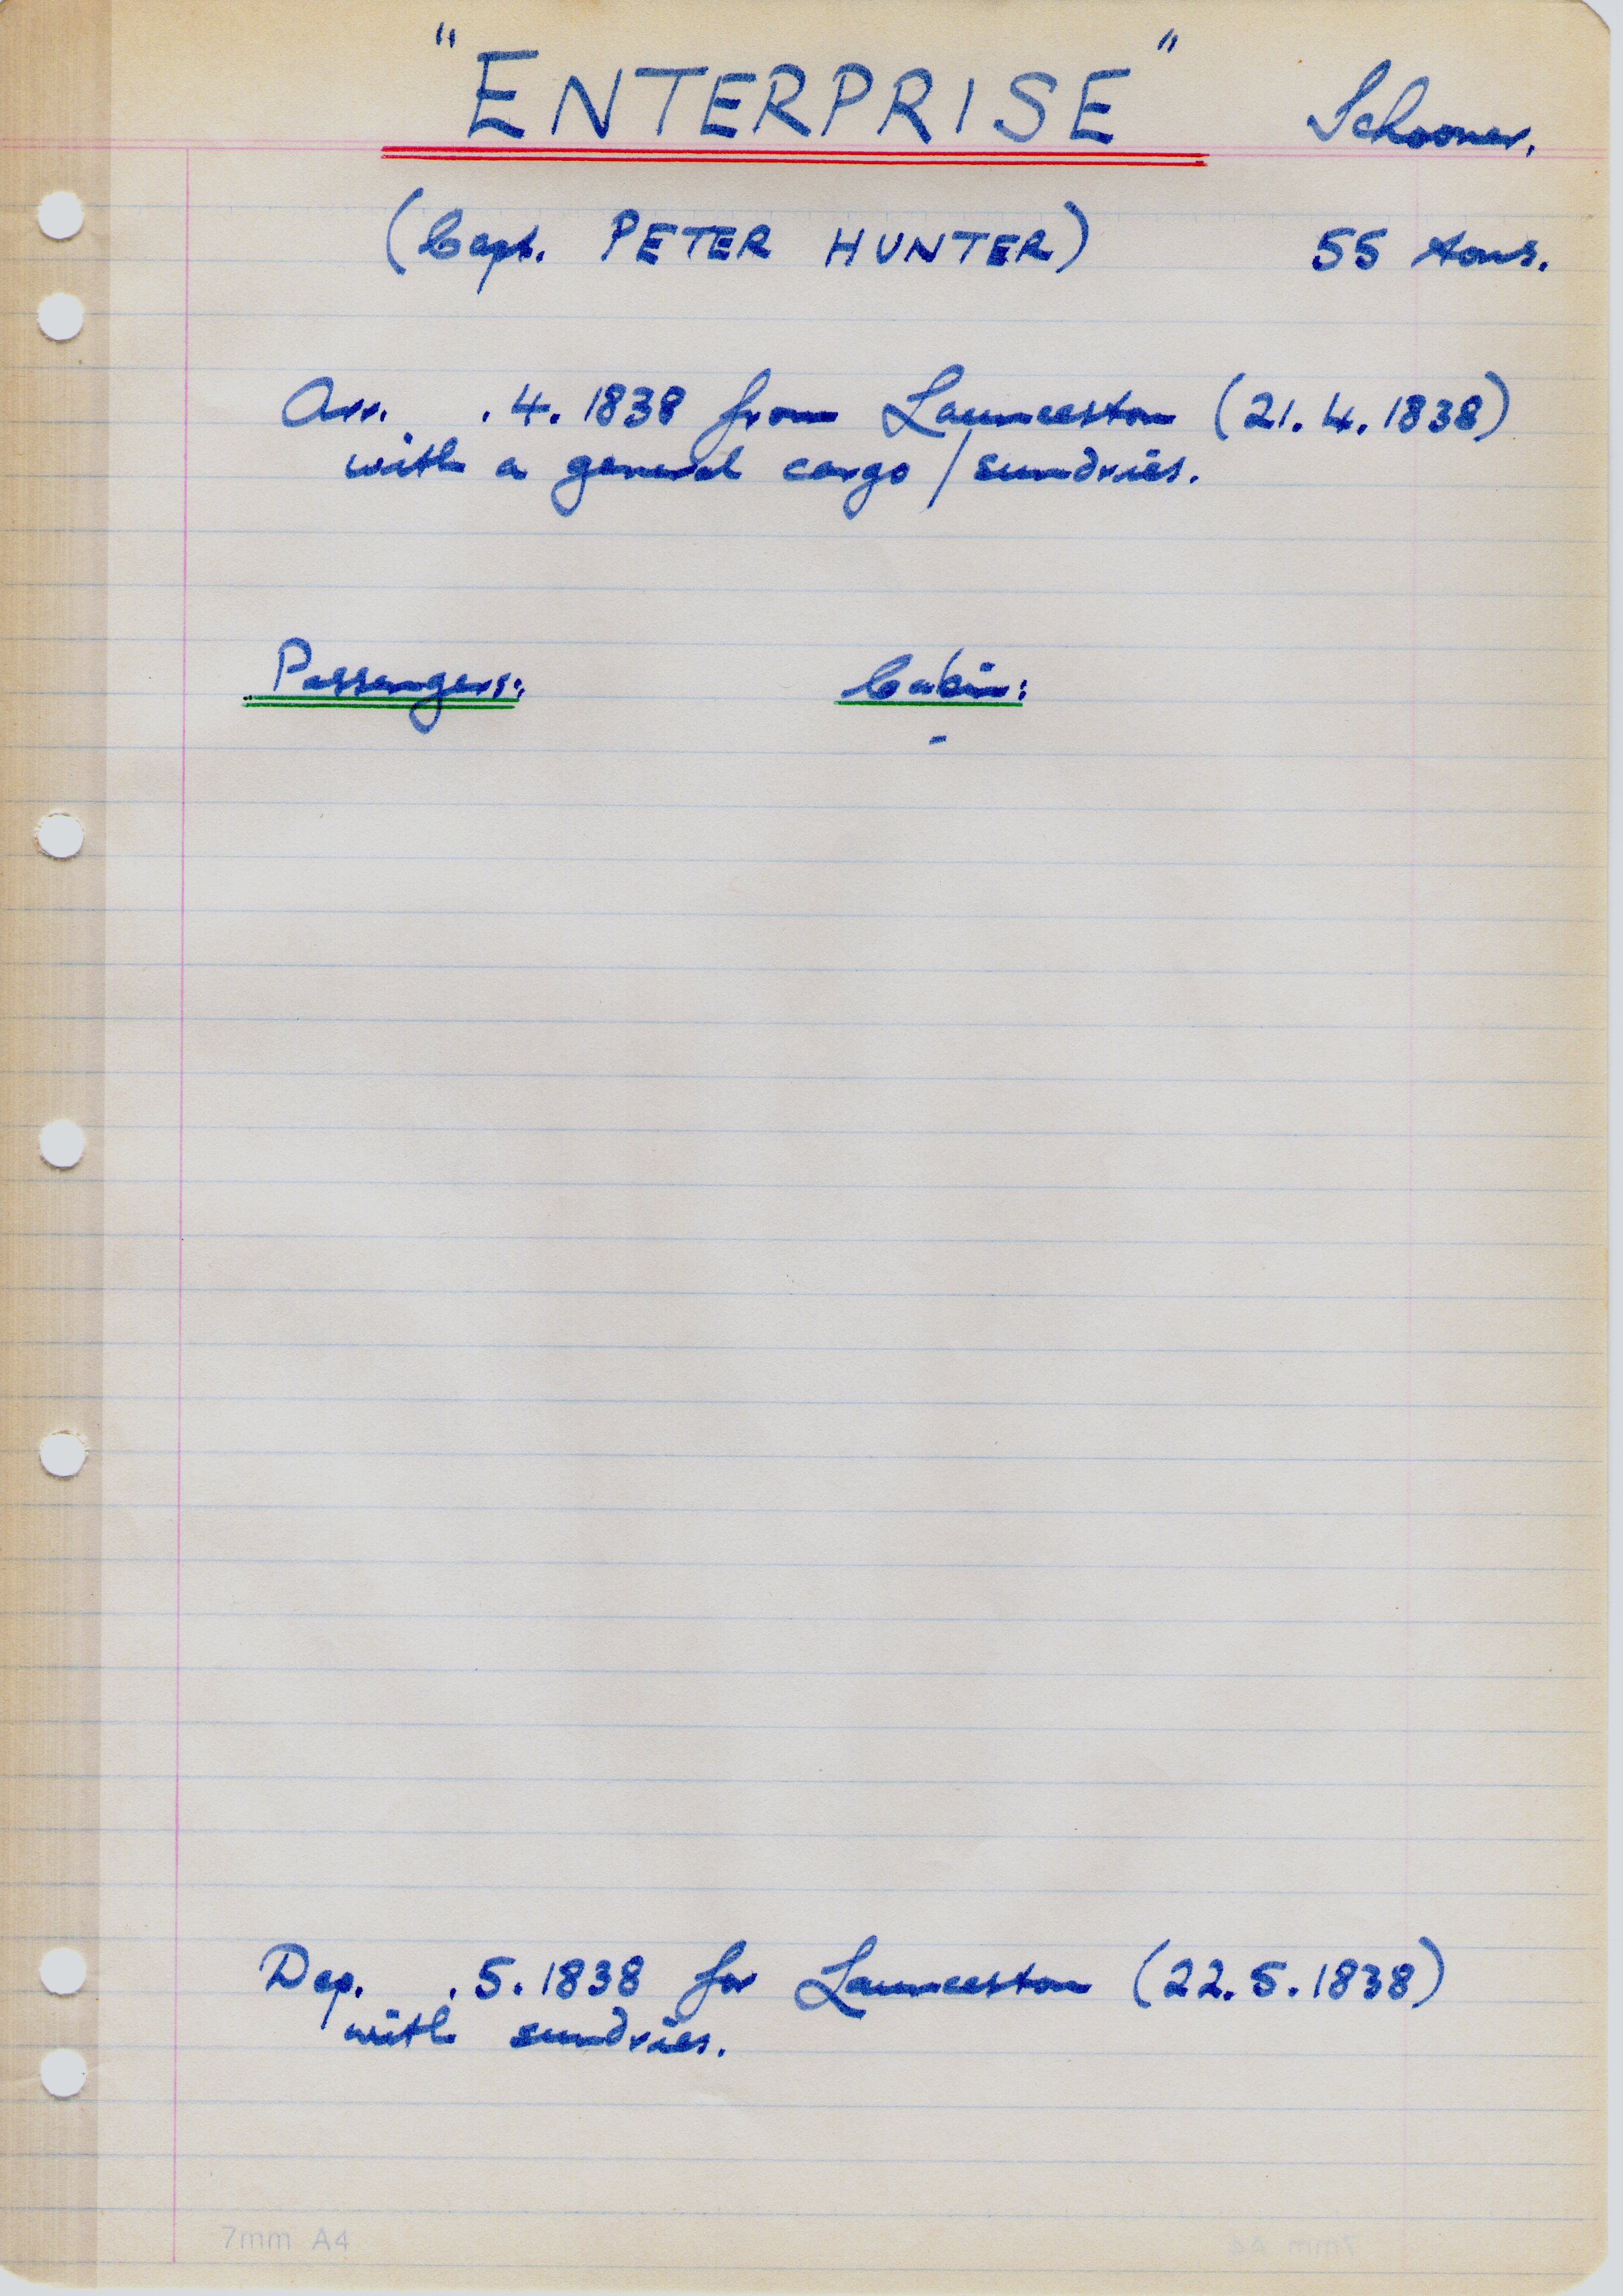 "ENTERPRISE" Schooner.
(Capt. PETER HUNTER) 55 tons.
Arr. .4.1838 from Launceston (21.4.1838)
with a general cargo / sundries.
Passengers: Cabin:
-
Dep. .5.1838 for Launceston (22.5.1838)
with sundries.
7mm A4